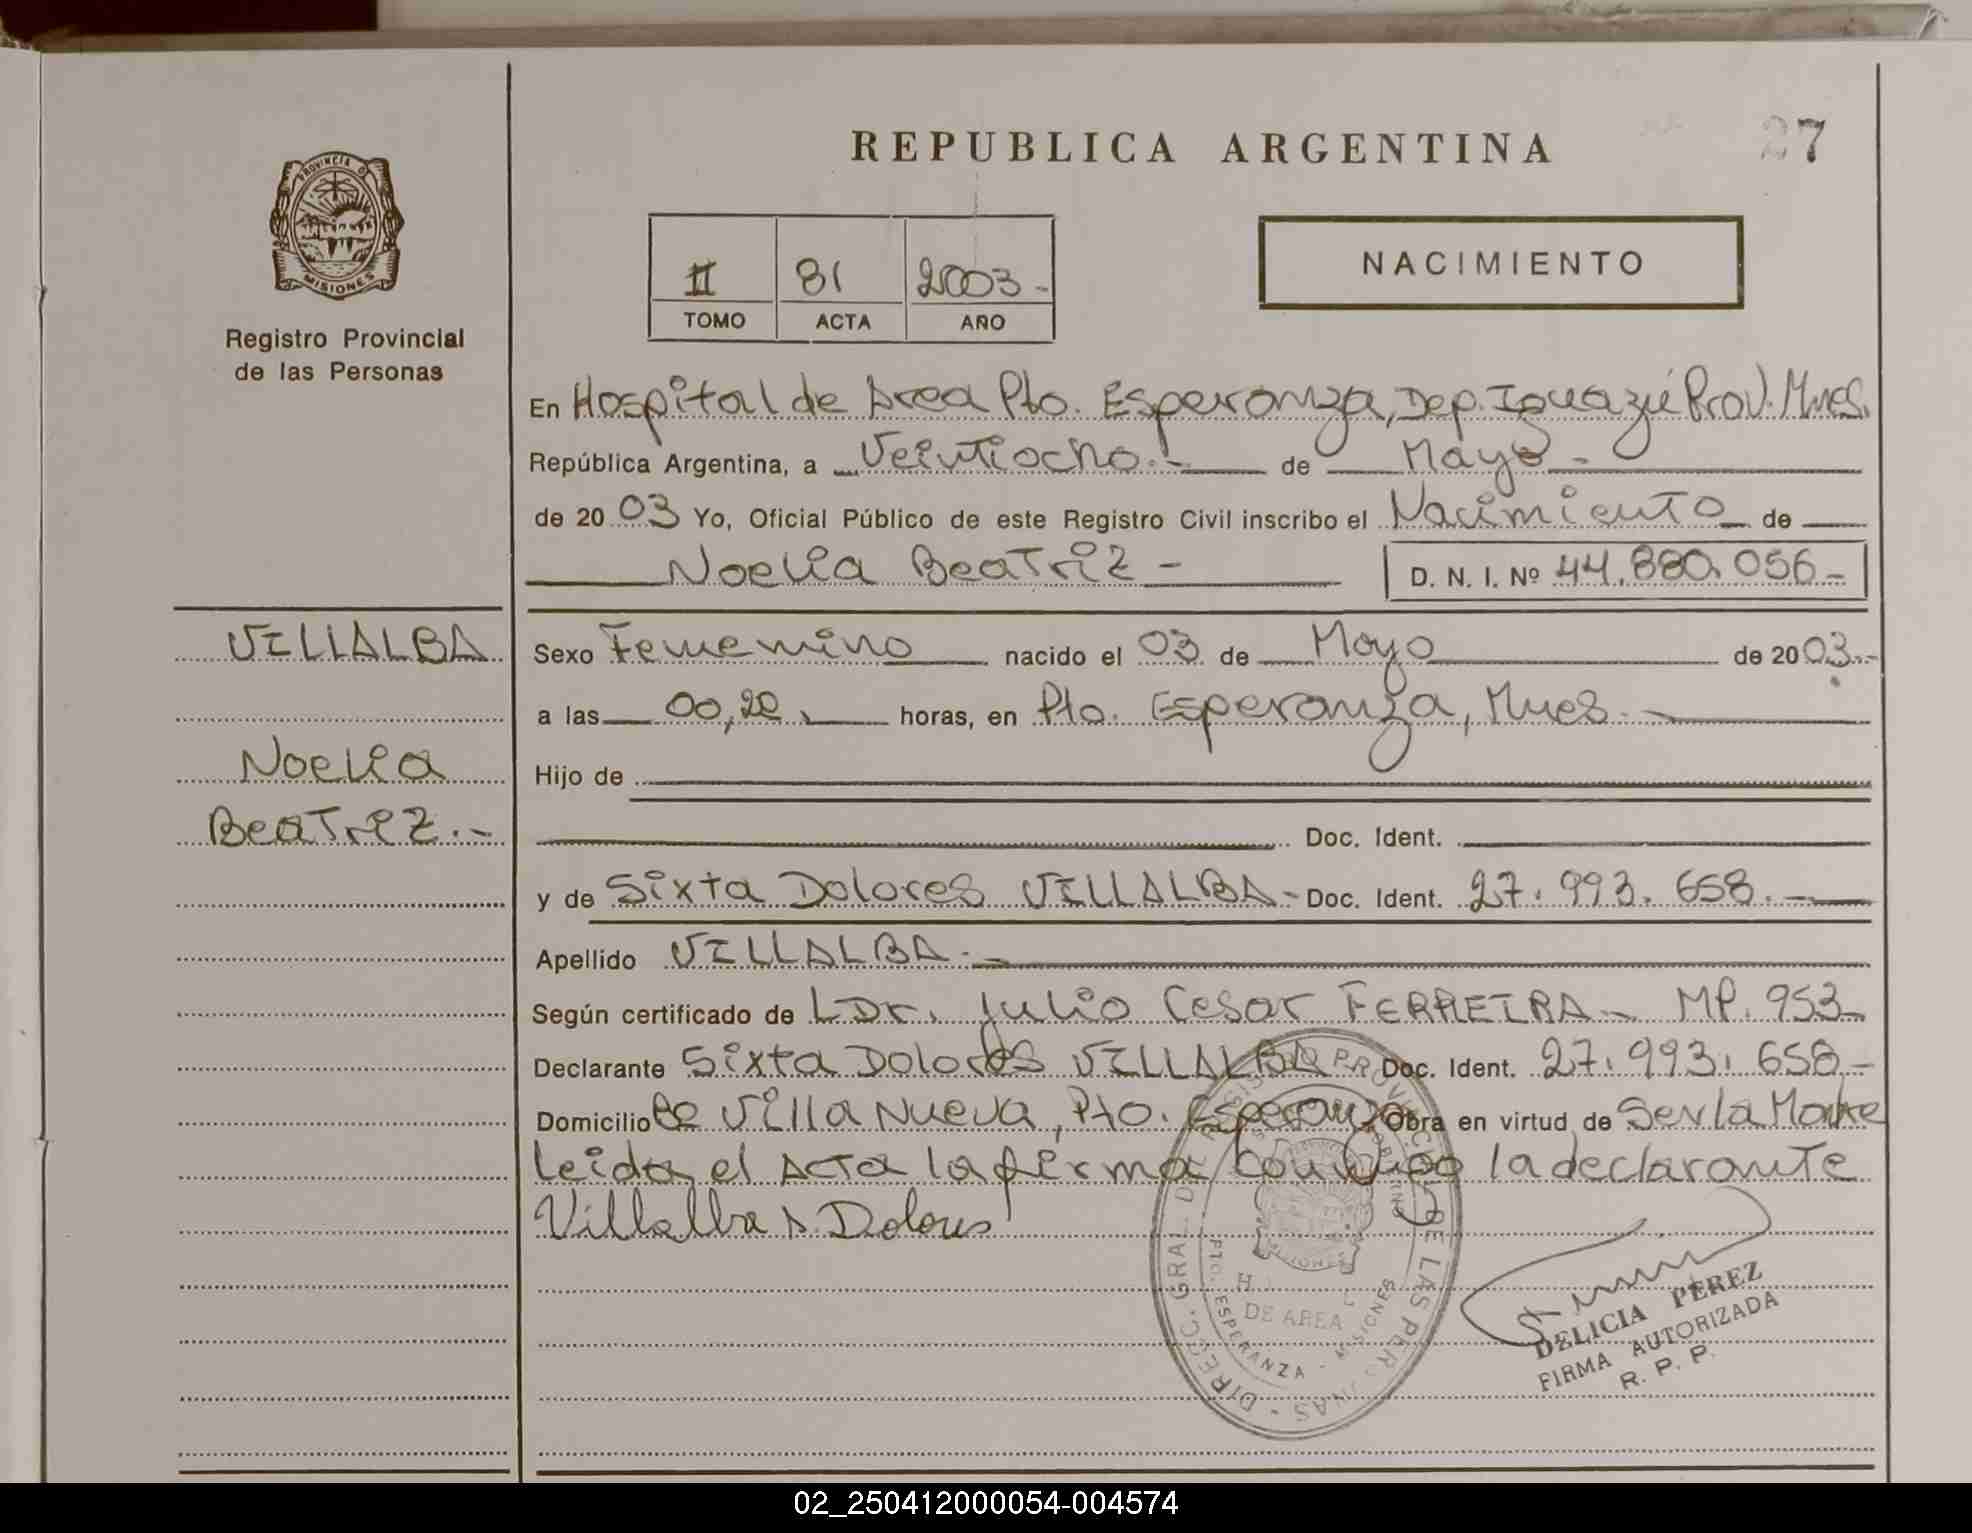 REPUBLICA ARGENTINA
27
PROVINCIA D
MISIONES
Registro Provincial
de las Personas
II 81 2003-
TOMO ACTA AÑO
NACIMIENTO
En Hospital de Area Pto. Esperanza, Dep. Iguazú Prov. Mnes.
República Argentina, a Veintiocho.- de Mayo-
de 2003 Yo, Oficial Público de este Registro Civil inscribo el Nacimiento de
Noelia Beatriz- D. N. I. Nº 44.880.056-
VILLALBA
Noelia
Beatriz.-
Sexo Femenino nacido el 03 de Mayo de 2003.-
a las 00,20 horas, en Pto. Esperanza, Mnes.
Hijo de
Doc. Ident.
y de Sixta Dolores VILLALBA- Doc. Ident. 27.993.658.-
Apellido VILLALBA.-
Según certificado de Dr. Julio Cesar FERREIRA- MP. 953-
Declarante Sixta Dolores VILLALBA Doc. Ident. 27.993.658-
Domicilio Bº Villa Nueva, Pto. Esperanza Obra en virtud de Ser la Madre
leida el Acta la firma conmigo la declarante
Villalba S. Dolores
DIRECC. GRAL. DEL REGISTRO PROVINCIAL DE LAS PERSONAS
DE AREA
PTO. ESPERANZA - MISIONES
DELICIA PEREZ
FIRMA AUTORIZADA
R. P. P.
02_250412000054-004574